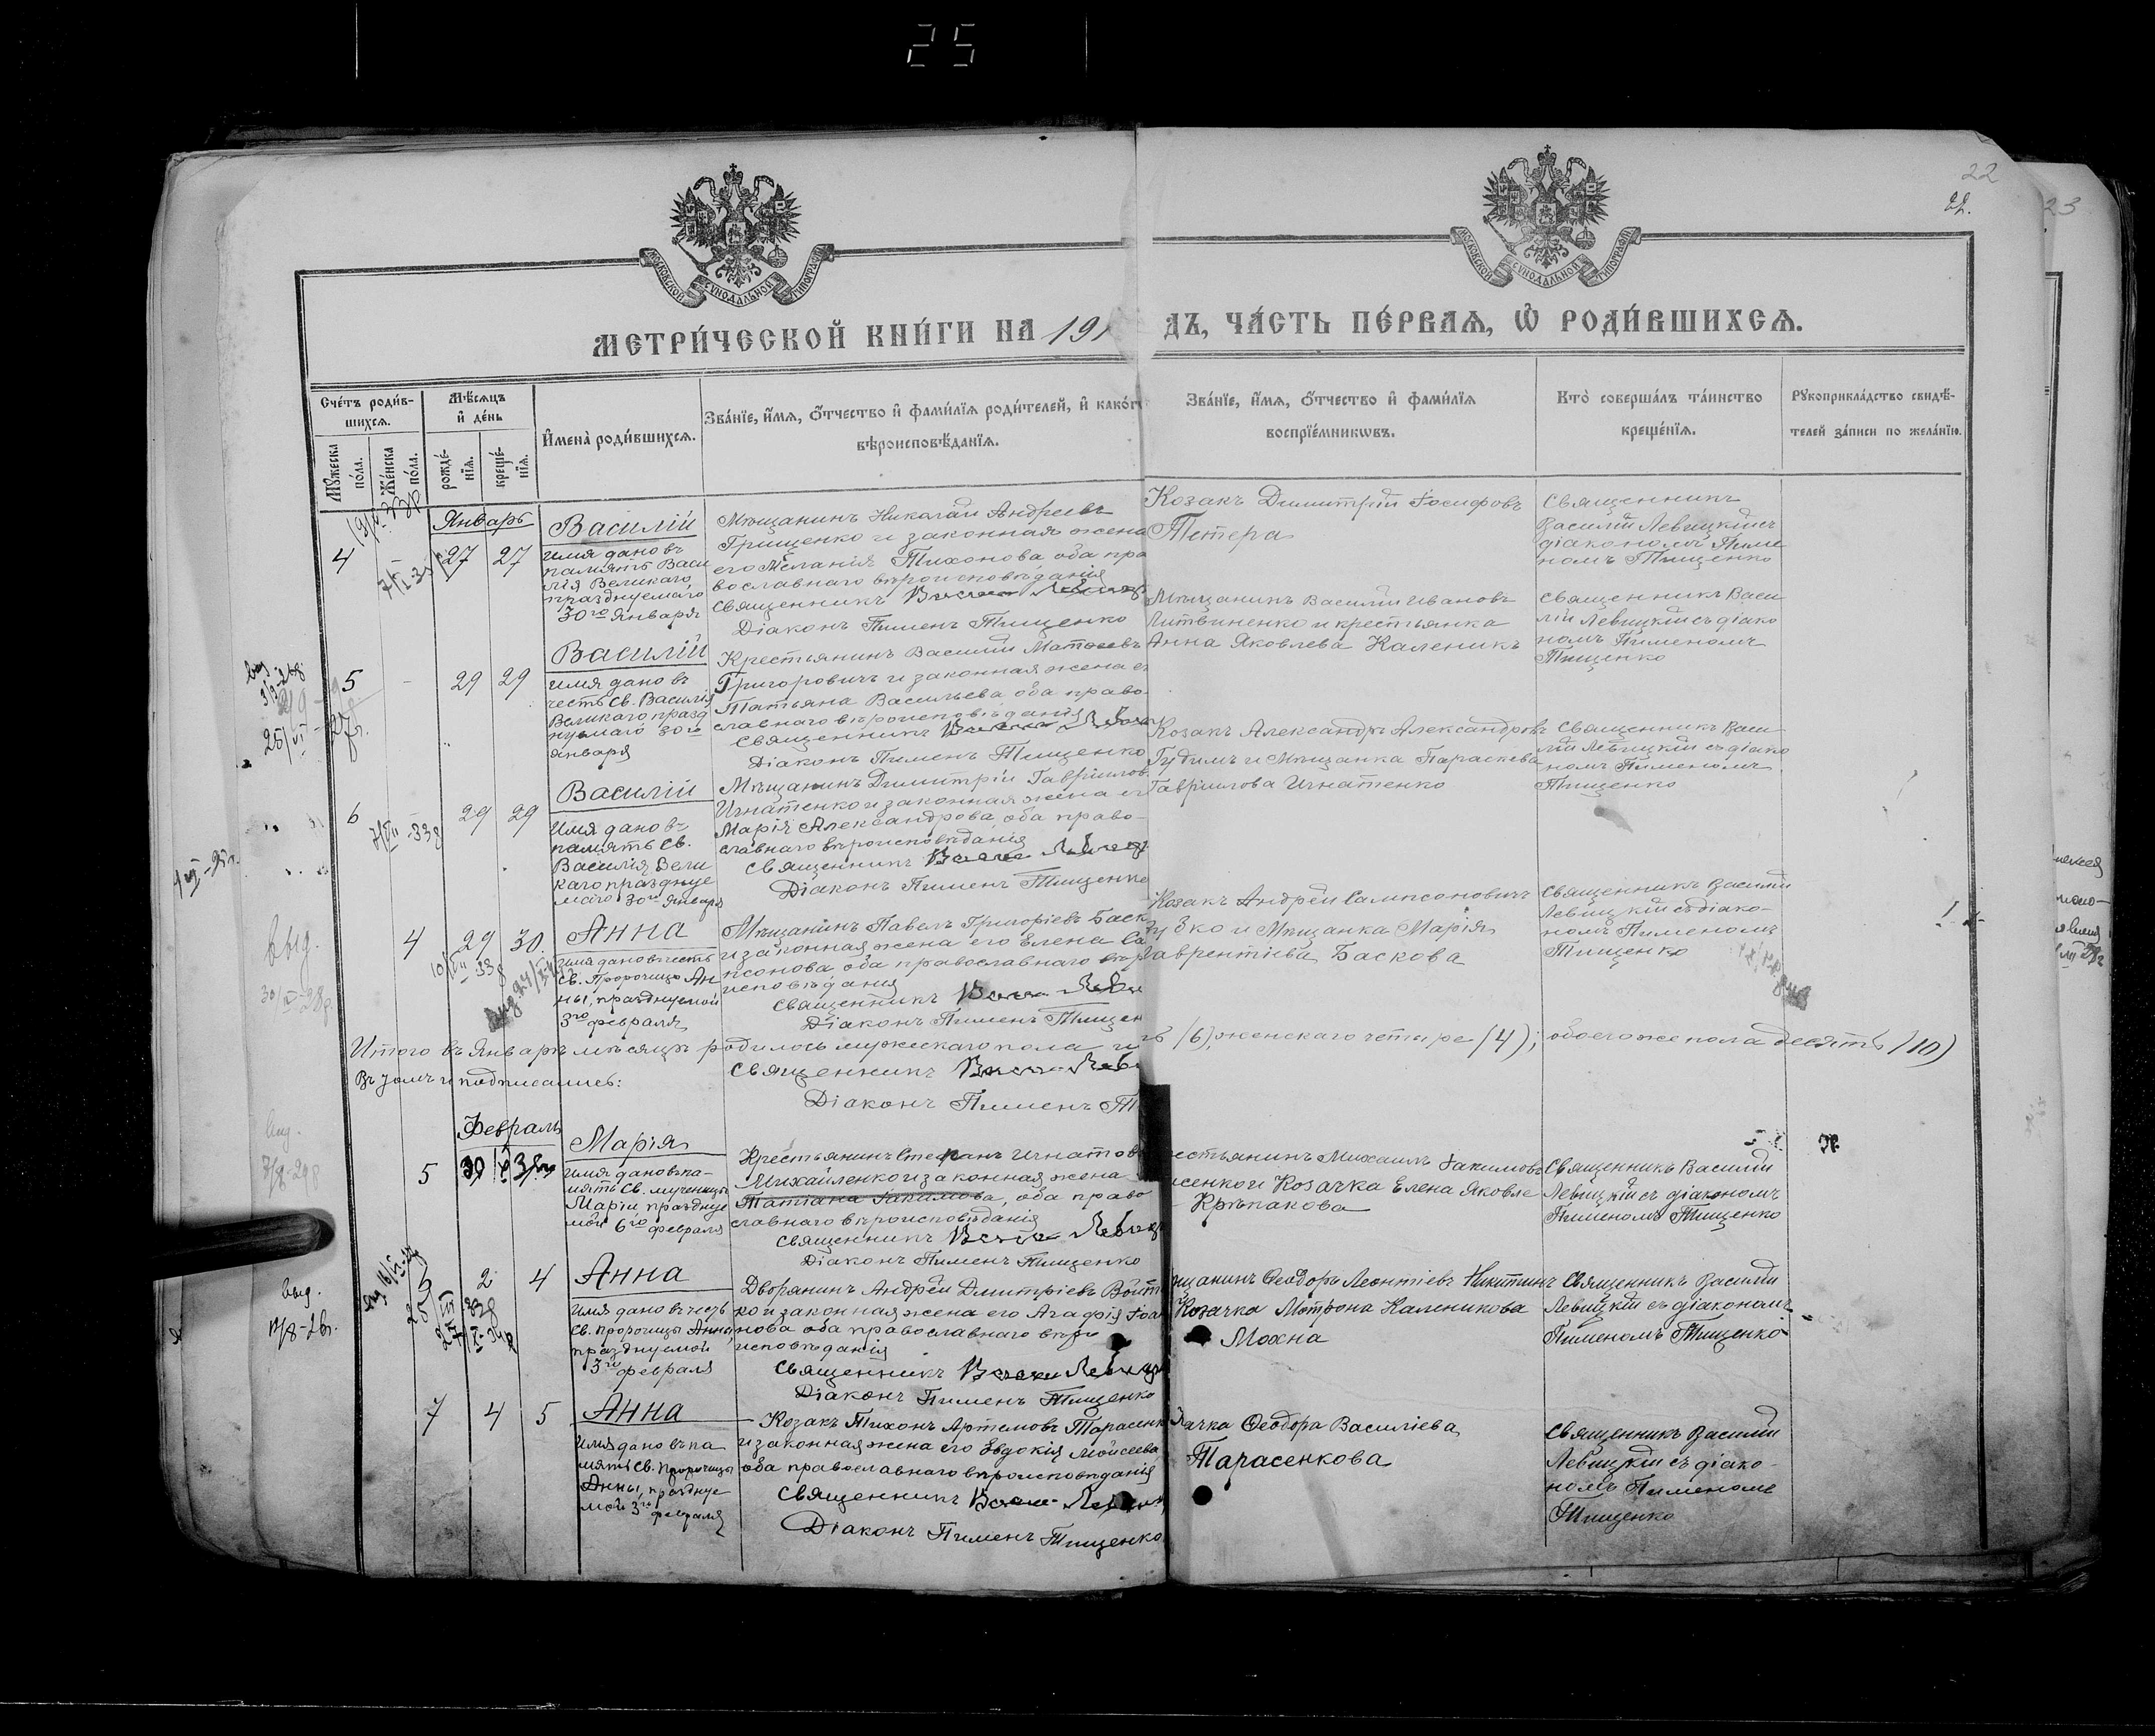 25
22
22.
23
МОСКОВСКОЙ СѴНОДАЛЬНОЙ ТИПОГРАФІИ
МОСКОВСКОЙ СѴНОДАЛЬНОЙ ТИПОГРАФІИ
МЕТРИ́ЧЕСКОЙ КНИ́ГИ НА 191
ДЪ, ЧА́СТЬ ПЕ́РВАѦ, Ѡ҆ РОДИ́ВШИХСѦ.
Сче́тъ роди́в-
шихсѧ.
Мꙋ́жеска по́ла.
Же́нска по́ла.
Мѣ́сѧцъ
и҆ де́нь
рожде́-
нїѧ.
креще́-
нїѧ.
И҆мена̀ роди́вшихсѧ.
Зва́нїе, и҆́мѧ, ѻ҆́тчество и҆ фами́лїѧ роди́телей, и҆ како́гѡ
вѣроисповѣ́данїѧ.
Зва́нїе, и҆́мѧ, ѻ҆́тчество и҆ фами́лїѧ
воспрїе́мникѡвъ.
Кто̀ соверша́лъ та́инство
креще́нїѧ.
Рꙋкоприкла́дство свидѣ́-
телей за́писи по жела́нїю.
Январь
4 - 27 27
Василій
имя дано въ
память Васи
лія Великаго
празднуемаго
30го Января
Мѣщанинъ Николай Андреевъ
Грищенко и законная жена
его Меланія Тихонова оба пра
вославнаго вѣроисповѣданія
Священникъ
Діаконъ Пименъ Тищенко
Козакъ Димитрій Іосифовъ
Тетеря
Священникъ
Василій Левицкій съ
діакономъ Пиме
номъ Тищенко
5 - 29 29
Василій
имя дано въ
честь Св. Василія
Великаго празд
нуемаго 30го
января
Крестьянинъ Василій Матѳеевъ
Григоровичъ и законная жена е
Татьяна Васильева оба право-
славнаго вѣроисповѣданія
Священникъ
Діаконъ Пименъ Тищенко
Мѣщанинъ Василій Ивановъ
Литвиненко и крестьянка
Анна Яковлева Каленикъ
Священникъ Васи
лій Левицкій съ діако
номъ Пименомъ
Тищенко
6 29 29
Василій
Имя дано въ
память Св.
Василія Вели
каго праздну
маго 30го Января
Мѣщанинъ Димитрій Гавріилов
Игнатенко и законная жена ег
Марія Александрова, оба право-
славнаго вѣроисповѣданія
Священникъ
Діаконъ Пименъ Тищенко
Козакъ Александръ Александровъ
Гудимъ и Мѣщанка Параскева
Гавріилова Игнатенко
Священникъ Васи
лій Левицкій съ діако
номъ Пименомъ
Тищенко
4 29 30
Анна
Имя дано въ честь
Св. Пророчицы Ан
ны, празднуемой
3го февраля
Мѣщанинъ Павелъ Григоріевъ Баск
и законная жена его Елена Са
псонова, оба православнаго вѣр
исповѣданія
Священникъ
Діаконъ Пименъ Тищен
Козакъ Андрей Сампсоновичъ
ко и Мѣщанка Марія
Лаврентіева Баскова
Священникъ Василій
Левицкій съ діако-
номъ Пименомъ
Тищенко
Итого въ Январѣ мѣсяцѣ родилось мужескаго пола ше
ть (6), женскаго четыре (4); обоего же пола десять (10)
Въ томъ и подписались:
Священникъ
Діаконъ Пименъ Ти
Февраль
5
Марія
Имя дано въ па-
мять Св. мученицы
Маріи, праздную
мой 6го февраля
Крестьянинъ Стефанъ Игнатов
Михайленко и законная жена
Татіана Іакимова, оба право
славнаго вѣроисповѣданія
Священникъ
Діаконъ Пименъ Тищенко
естьянинъ Михаилъ Іакимовъ
сенко и Козачка Елена Яковле
Крѣпакова
Священникъ Василій
Левицкій съ діакономъ
Пименомъ Тищенко
2 4
Анна
Имя дано въ честь
Св. пророчицы Анны
празднуемой
3го февраля
Дворянинъ Андрей Дмитріевъ Войт
ко и законная жена его Агафія Іоан
нова оба православнаго вѣро
исповѣданія
Священникъ
Діаконъ Пименъ Тищенко
щанинъ Ѳеодоръ Леонтіевъ Никитинъ
Козачка Мотрона Каленикова
Мохна
Священникъ Василій
Левицкій съ діакономъ
Пименомъ Тищенко
7 4 5
Анна
Имя дано въ па
мять Св. Пророчицы
Анны, праздную
мой 3го февраля
Козакъ Тихонъ Артемовъ Тарасенк
и законная жена его Евдокія Моисеева
оба православнаго вѣроисповѣданія
Священникъ
Діаконъ Пименъ Тищенко
зачка Ѳеодора Василіева
Тарасенкова
Священникъ Василій
Левицкій съ діако-
номъ Пименомъ
Тищенко